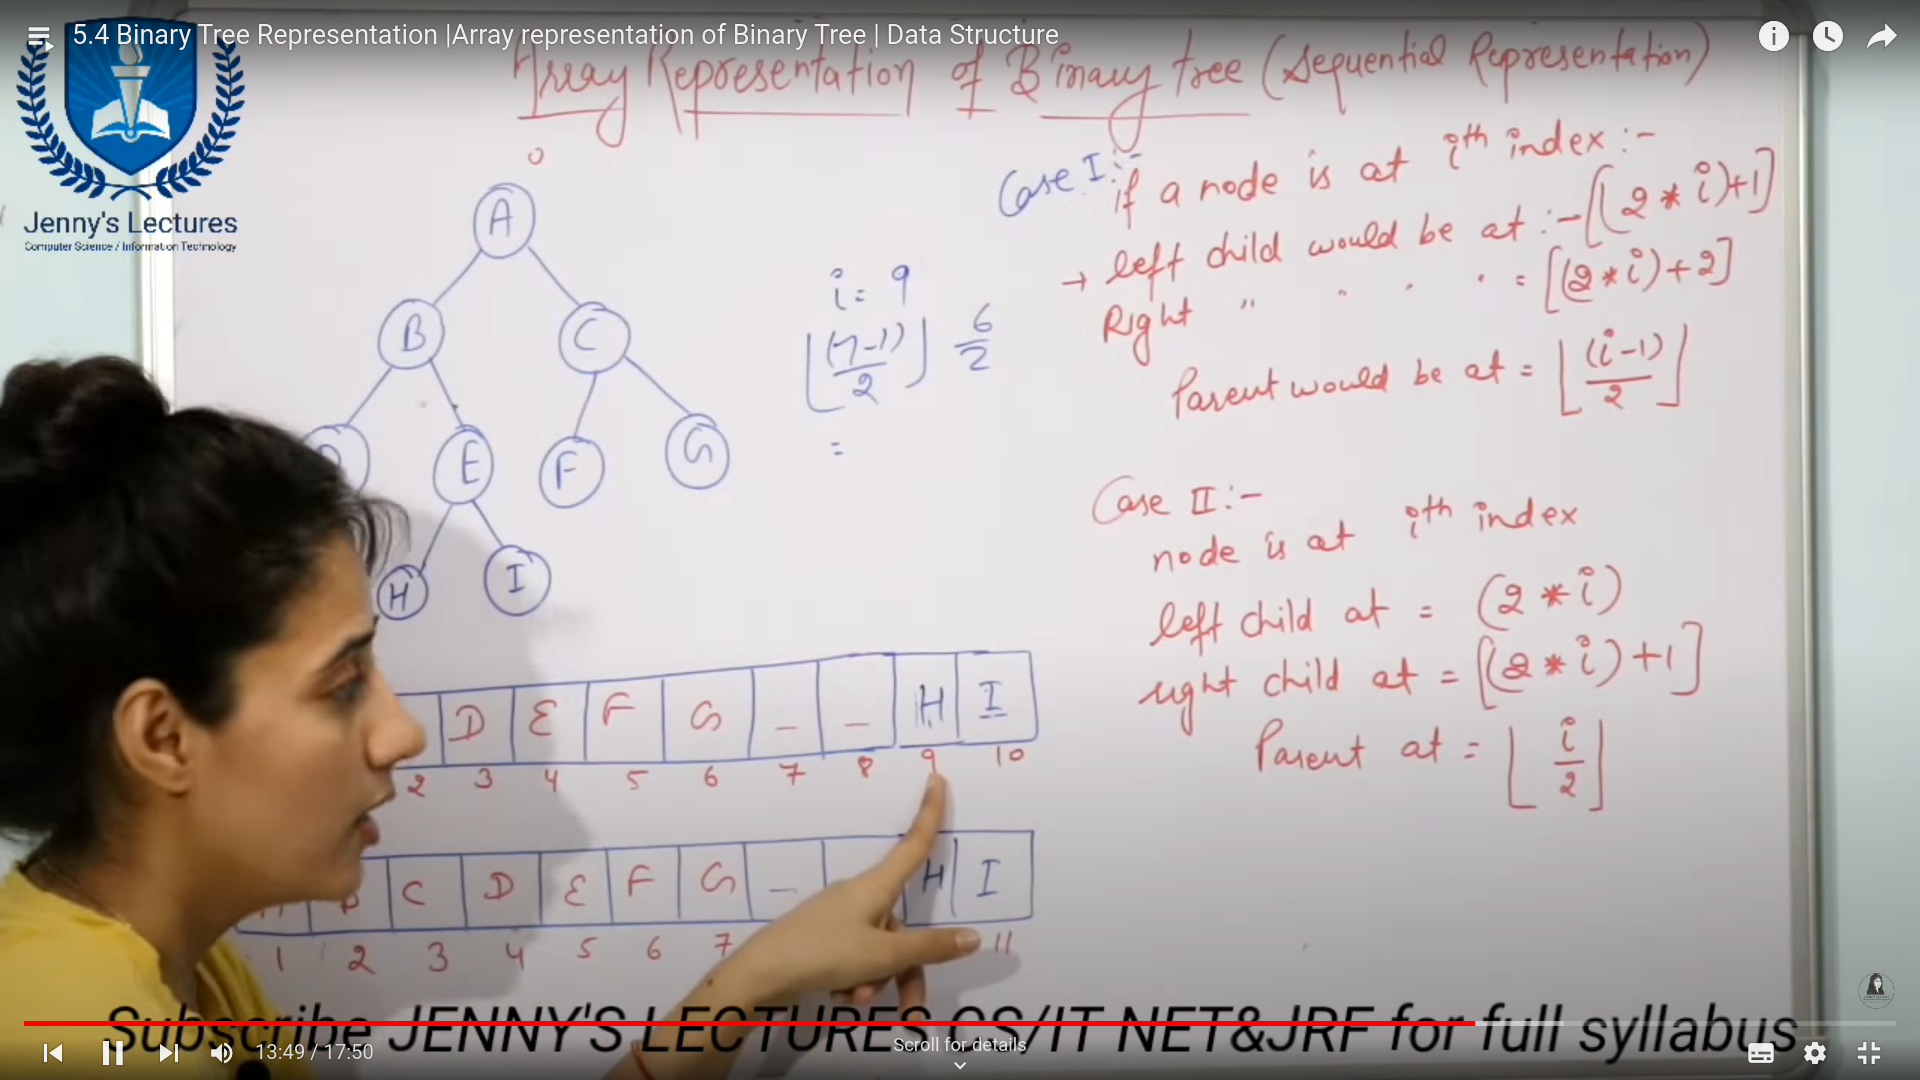 5.4 Binary Tree Representation |Array representation of Binary Tree | Data Structure
Array Representation of Binary tree (Sequential Representation)
Jenny's Lectures
Computer Science / Information Technology
0
A
B
C
E
F
G
H
I
i = 9
⌊(7-1)/2⌋ 6/2
=
Case I :-
if a node is at ith index :-
→ left child would be at :- [(2 * i)+1]
Right " " " " = [(2*i)+2]
Parent would be at = ⌊(i-1)/2⌋
Case II :-
node is at ith index
left child at = (2 * i)
right child at = [(2 * i) +1]
Parent at = ⌊i/2⌋
D E F G _ _ H I
2 3 4 5 6 7 8 9 10
C D E F G _ H I
1 2 3 4 5 6 7 11
Subscribe JENNY'S LECTURES CS/IT NET&JRF for full syllabus
13:49 / 17:50
Scroll for details